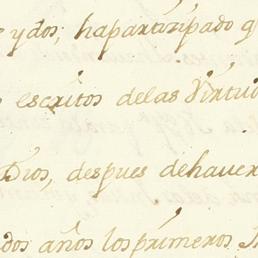 y dos, ha partizipado q
escritos delas Virtud
Dios, despues dehaver
dos años los primeros